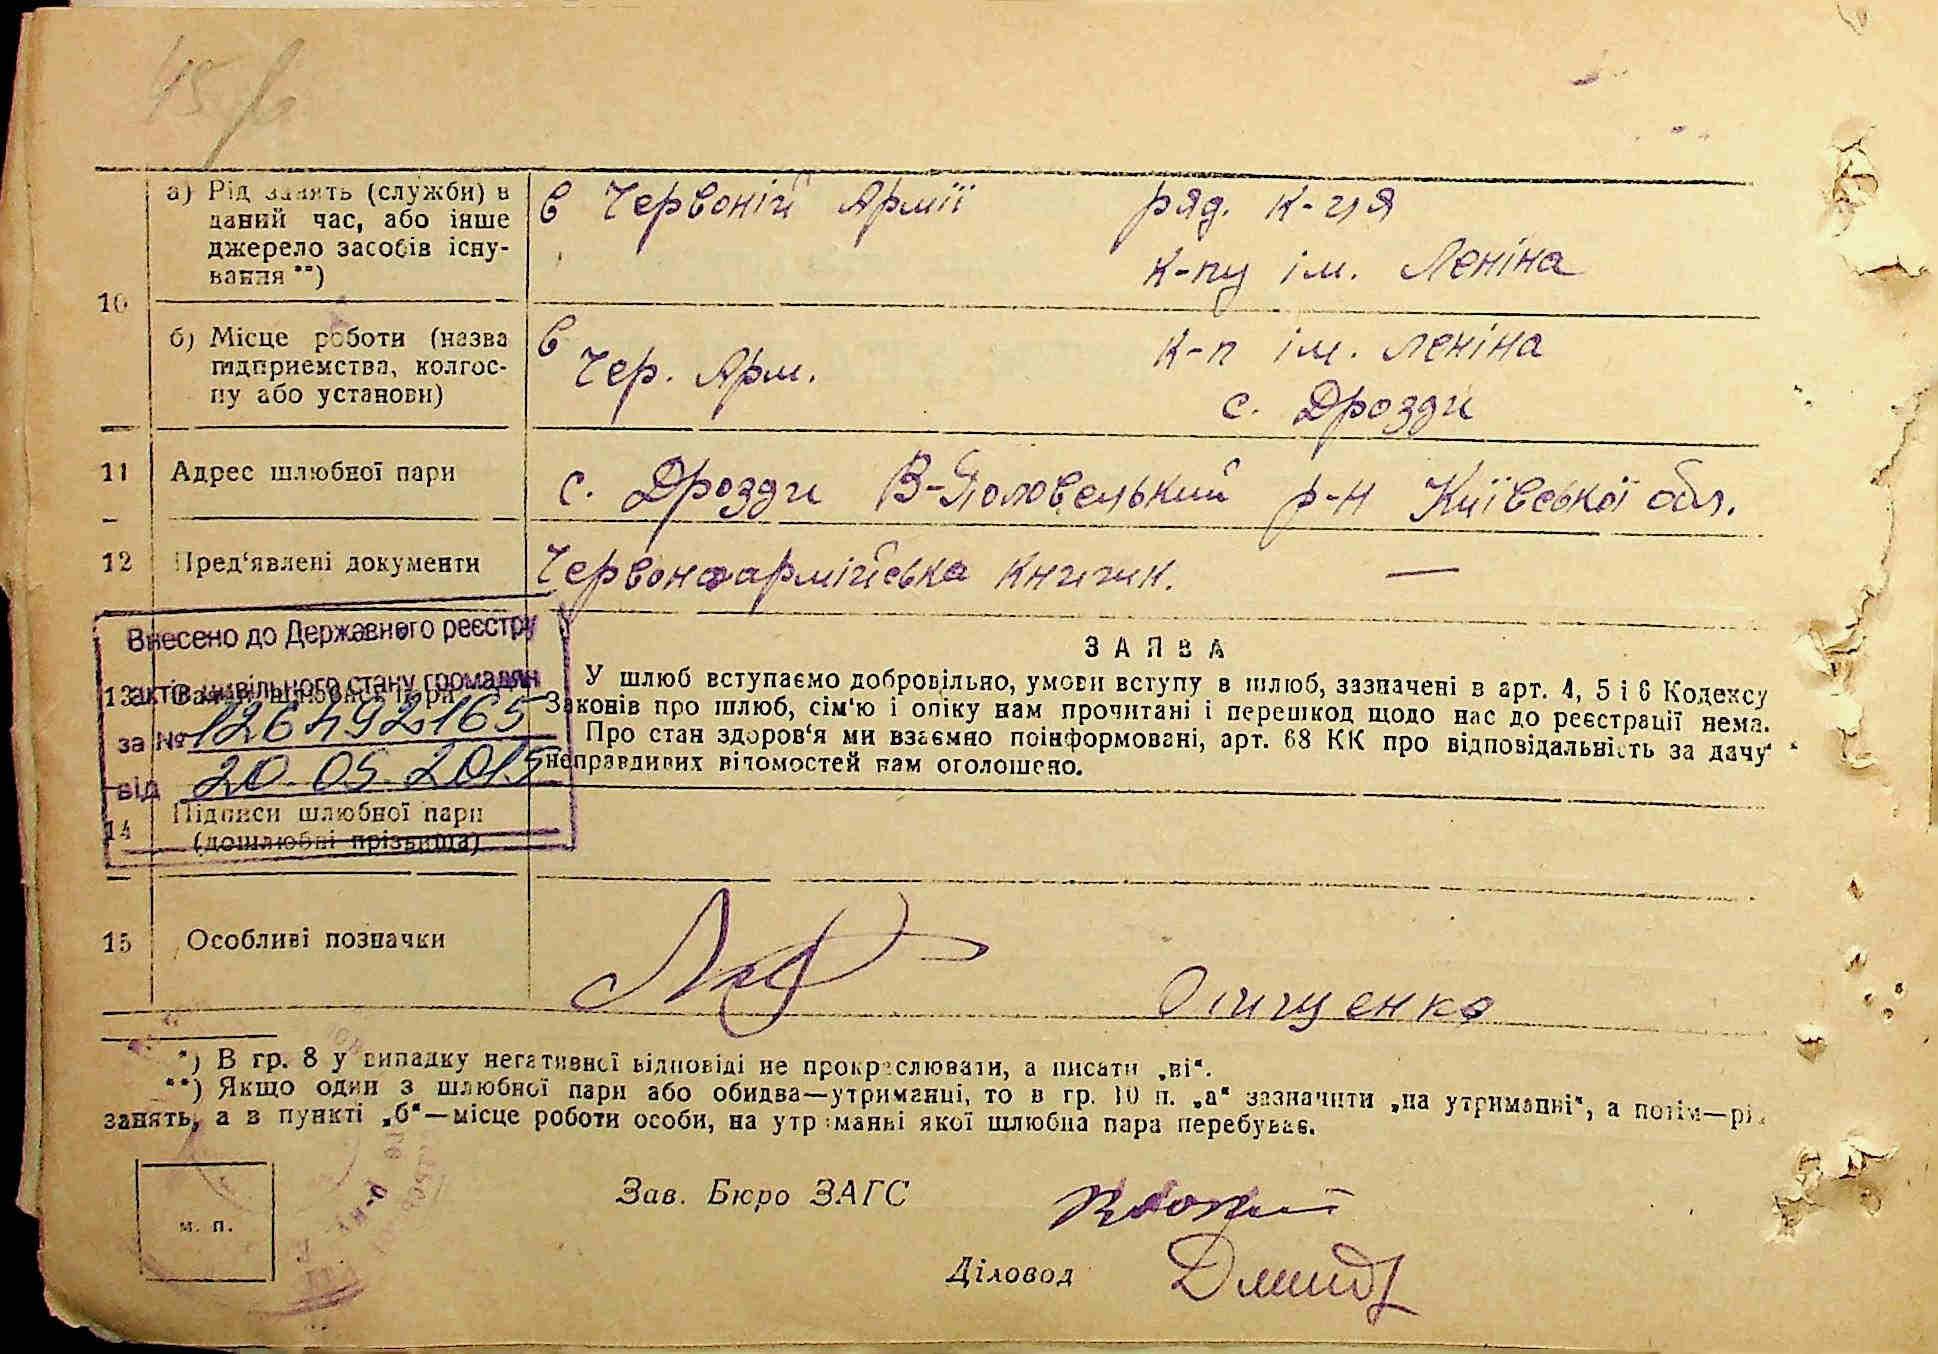 45
10
а) Рід занять (служби) в
даний час, або інше
джерело засобів існу-
вання **)
в Червоній Армії
ряд. к-ця
к-пу ім. Леніна
б) Місце роботи (назва
підприємства, колгос-
пу або установи)
в
Чер. Арм.
к-п ім. Леніна
с. Дрозди
11 Адрес шлюбної пари
с. Дрозди В-Половецький р-н Київської обл.
12 Пред'явлені документи
Червоноармійська книжк. —
Внесено до Державного реєстру
актів цивільного стану громадян
за № 126492165
від 20 05 2015
13
ЗАЯВА
У шлюб вступаємо добровільно, умови вступу в шлюб, зазначені в арт. 4, 5 і 6 Кодексу
Законів про шлюб, сім'ю і опіку нам прочитані і перешкод щодо нас до реєстрації нема.
Про стан здоров'я ми взаємно поінформовані, арт. 68 КК про відповідальність за дачу
неправдивих відомостей нам оголошено.
14 Підписи шлюбної пари
(дошлюбні прізвища)
15 Особливі позначки
Онищенко
*) В гр. 8 у випадку негативної відповіді не прокреслювати, а писати „ні“.
**) Якщо один з шлюбної пари або обидва—утриманці, то в гр. 10 п. „а“ зазначити „на утриманні“, а потім—рід
занять, а в пункті „б“—місце роботи особи, на утриманні якої шлюбна пара перебуває.
м. п.
Зав. Бюро ЗАГС
Діловод